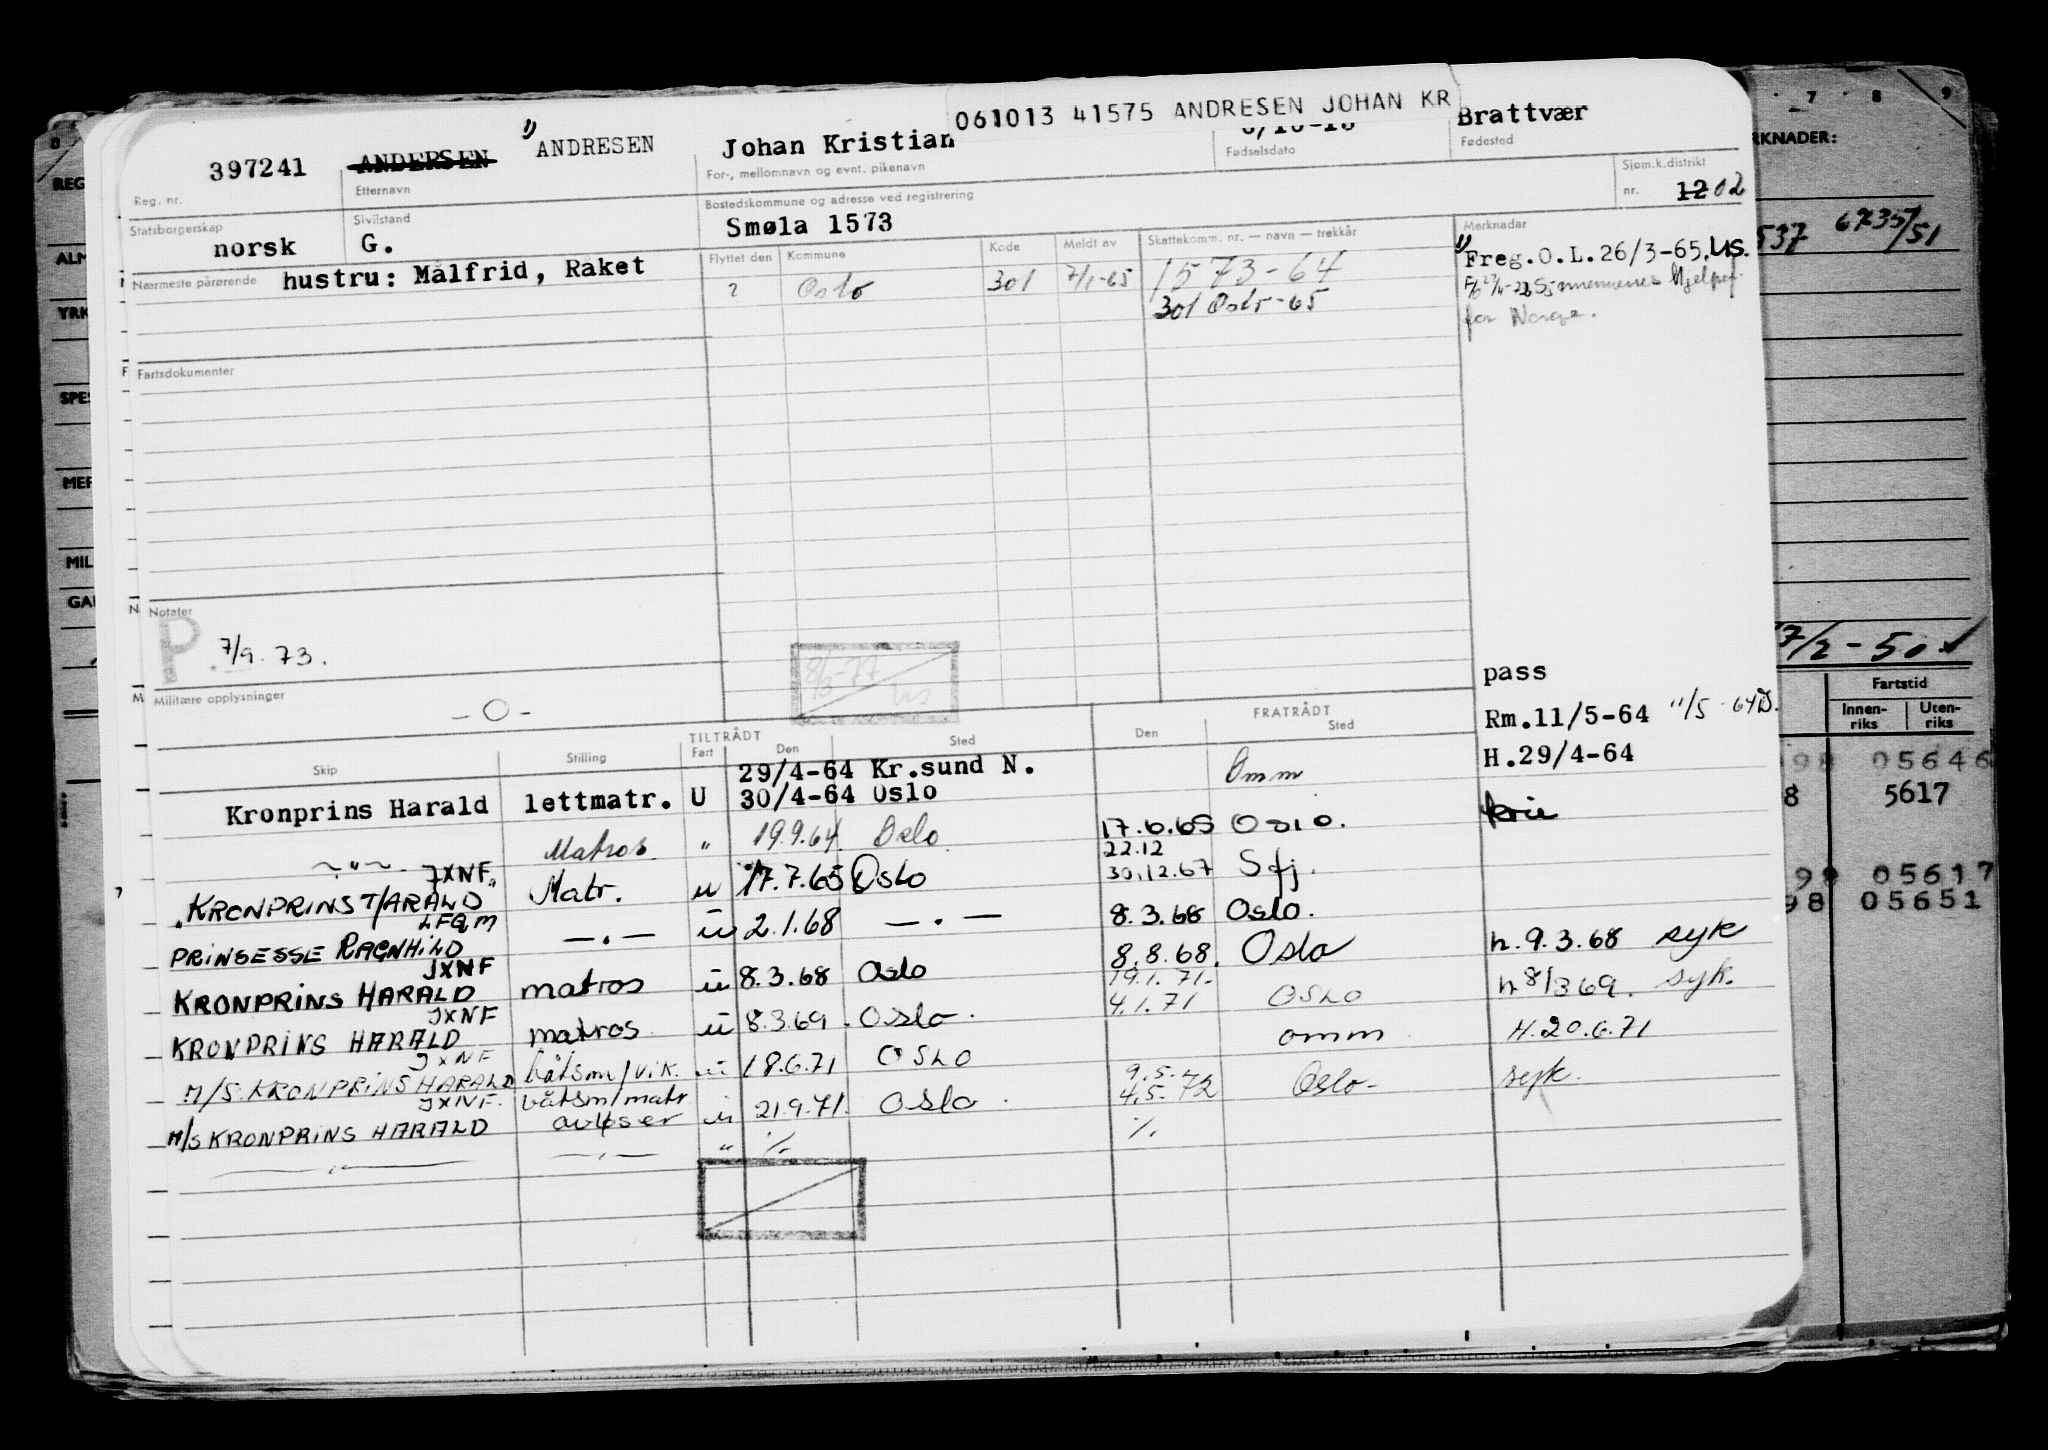 061013 41575 ANDRESEN JOHAN KR
397241 ANDERSEN 1) ANDRESEN Johan Kristian Brattvær
Reg. nr. Etternavn For-, mellomnavn og evnt. pikenavn Fødselsdato Fødested
Statsborgerskap Sivilstand Bostedskommune og adresse ved registrering Sjøm.k.distrikt
norsk G. Smøla 1573 nr. 12 02
Nærmeste pårørende hustru: Målfrid, Raket
Flyttet den Kommune Kode Meldt av Skattekomm. nr. — navn — trekkår Merknader
? Oslo 301 7/1-65 1573-64
301 Oslo-65
1) Freg.O.L.26/3-65.US.
for Norge.
Fartsdokumenter
Notater
P. 7/9.73.
8/3-77
Militære opplysninger
-O-
pass
Rm.11/5-64 11/5-64
H.29/4-64
TILTRÅDT FRATRÅDT
Skip Stilling Fart Den Sted Den Sted
29/4-64 Kr.sund N.
Kronprins Harald lettmatr. U 30/4-64 Oslo Omm
—"— Matros " 19.9.64 Oslo 17.6.65 Oslo.
JXNF 22.12
KRONPRINS HARALD Matr. u 17.7.65 Oslo 30.12.67 Sfj.
LFQM
PRINSESSE RAGNHILD —.— u 2.1.68 —.— 8.3.68 Oslo.
JXNF
KRONPRINS HARALD matros u 8.3.68 Oslo 8.8.68. Oslo h.9.3.68 syk
JXNF 19.1.71.
KRONPRINS HARALD matros u 8.3.69. Oslo. 4.1.71 OSLO h 8/3 69. syk.
JXNF
M/S. KRONPRINS HARALD båtsm/vik. u 18.6.71 OSLO omm. H.20.6.71
JXNF. båtsm/matr 9.5.72
M/S KRONPRINS HARALD avløser u 21.9.71. Oslo. 4.5.72 Oslo- syk.
—"— —"— " %. %.
7 8 9
MERKNADER:
537 6735/51
7/2-50
Fartstid
Innen-
riks Uten-
riks
98 05646
8 5617
99 05617
98 05651
REG
ALM
YRK
SPES
MER
MIL
GAI